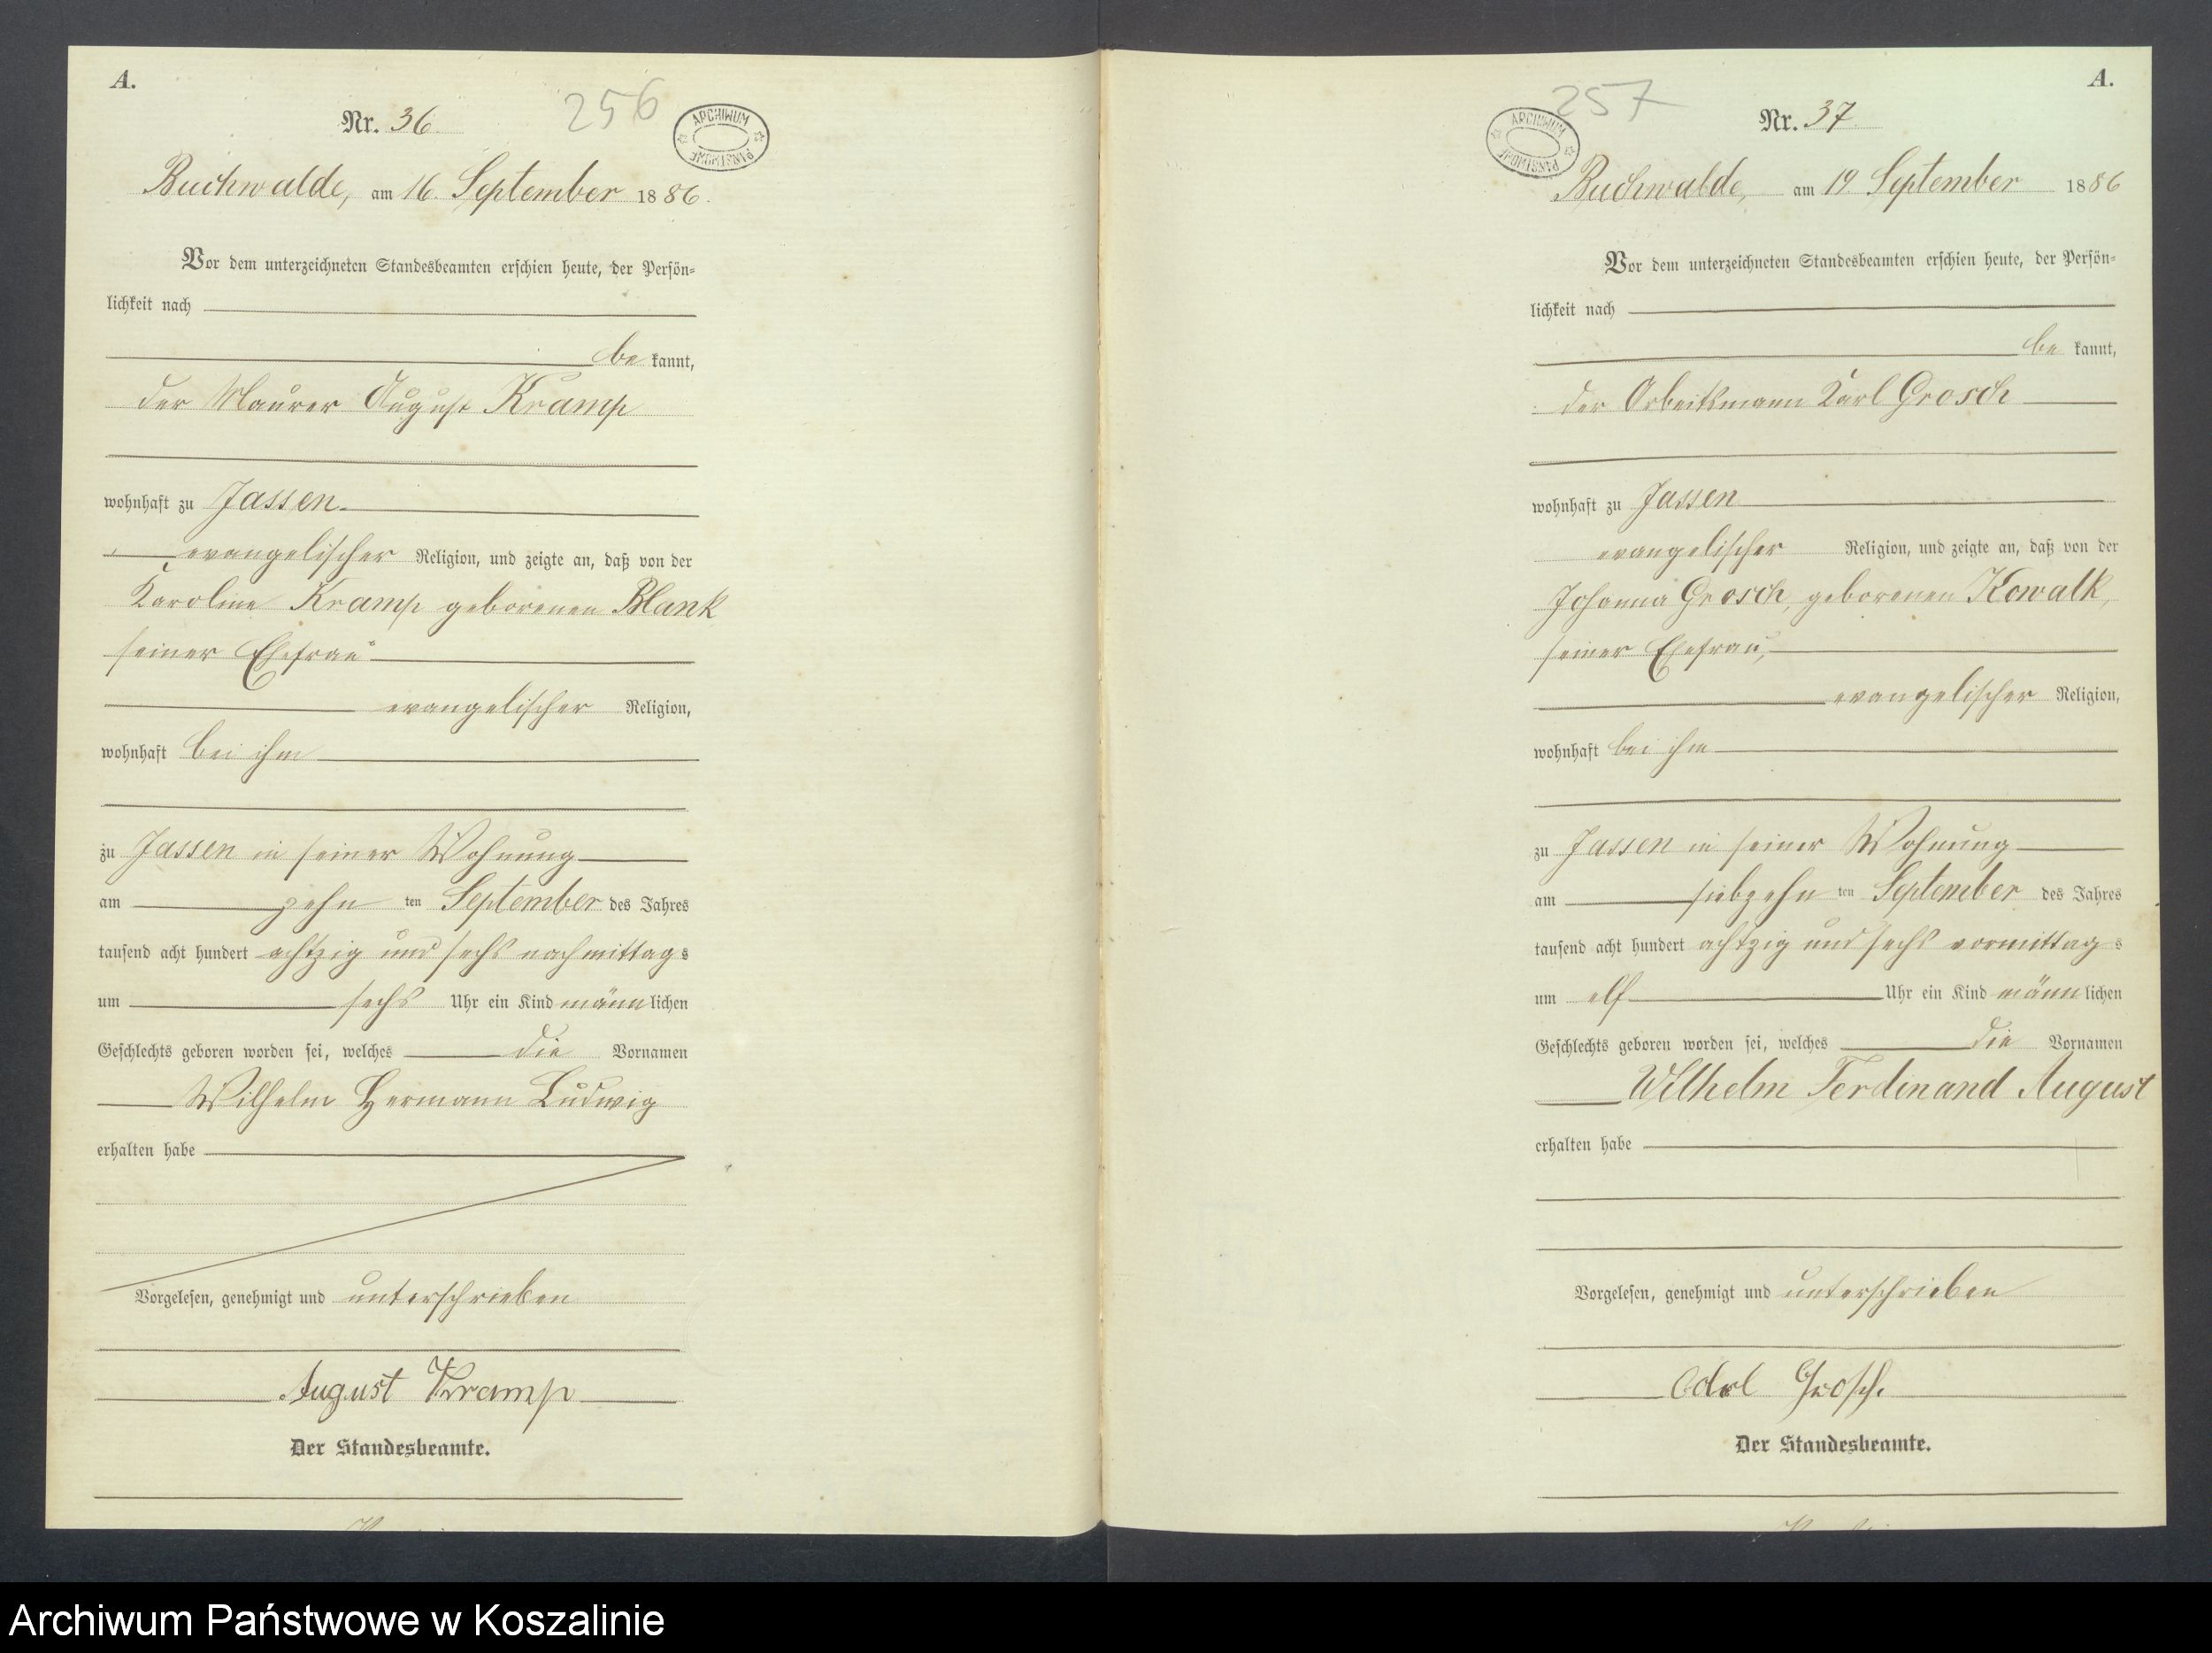 A.
Nr. 36.
256
ARCHIWUM
PAŃSTWOWE
Buchwalde, am 16. September 1886.
Vor dem unterzeichneten Standesbeamten erschien heute, der Persön=
lichkeit nach
be kannt,
der Maurer August Kramp
wohnhaft zu Jassen
evangelischer Religion, und zeigte an, daß von der
Karoline Kramp geborenen Blank
seiner Ehefrau
evangelischer Religion,
wohnhaft bei ihm
zu Jassen in seiner Wohnung
am zehn ten September des Jahres
tausend acht hundert achtzig und sechs nachmittag s
um sechs Uhr ein Kind männ lichen
Geschlechts geboren worden sei, welches die Vornamen
Wilhelm Hermann Ludwig
erhalten habe
Vorgelesen, genehmigt und unterschrieben
August Kramp
Der Standesbeamte.
A.
257
Nr. 37.
ARCHIWUM
PAŃSTWOWE
Buchwalde, am 19. September 1886
Vor dem unterzeichneten Standesbeamten erschien heute, der Persön=
lichkeit nach
be kannt,
der Arbeitsmann Karl Grosch
wohnhaft zu Jassen
evangelischer Religion, und zeigte an, daß von der
Johanna Grosch, geborenen Kowalk,
seiner Ehefrau,
evangelischer Religion,
wohnhaft bei ihm
zu Jassen in seiner Wohnung
am siebzehn ten September des Jahres
tausend acht hundert achtzig und sechs vormittag s
um elf Uhr ein Kind männ lichen
Geschlechts geboren worden sei, welches die Vornamen
Wilhelm Ferdinand August
erhalten habe
Vorgelesen, genehmigt und unterschrieben
Carl Grosch.
Der Standesbeamte.
Archiwum Państwowe w Koszalinie